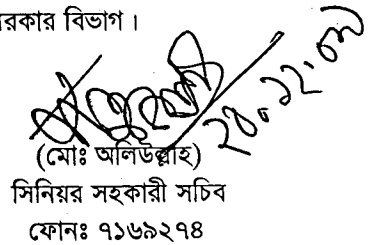 রকার বিভাগ।
(মোঃ অলিউল্লাহ)
সিনিয়র সহকারী সচিব
ফোনঃ ৭১৬৯২৭৪